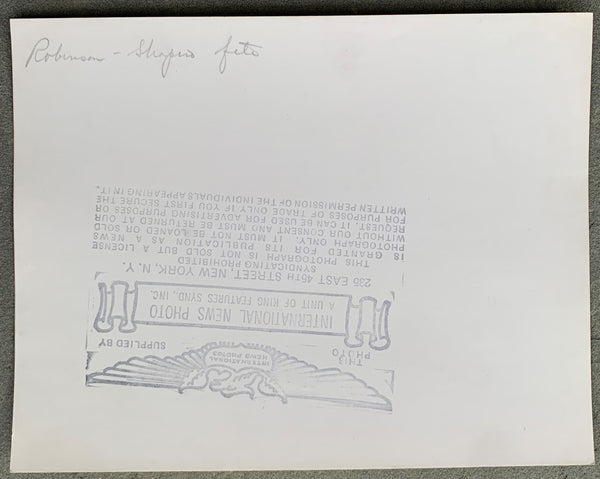 Robinson - Shapiro fite
INTERNATIONAL
NEWS PHOTOS
THIS
PHOTO
SUPPLIED BY
INTERNATIONAL NEWS PHOTO
A UNIT OF KING FEATURES SYND., INC.
235 EAST 45TH STREET, NEW YORK, N. Y.
SYNDICATING PROHIBITED
THIS PHOTOGRAPH IS NOT SOLD BUT A LICENSE
IS GRANTED FOR ITS PUBLICATION AS A NEWS
PHOTOGRAPH ONLY. IT MUST NOT BE LOANED OR SOLD
WITHOUT OUR CONSENT AND MUST BE RETURNED AT OUR
REQUEST. IT CAN BE USED FOR ADVERTISING PURPOSES OR
FOR PURPOSES OF TRADE ONLY IF YOU FIRST SECURE THE
WRITTEN PERMISSION OF THE INDIVIDUALS APPEARING IN IT.